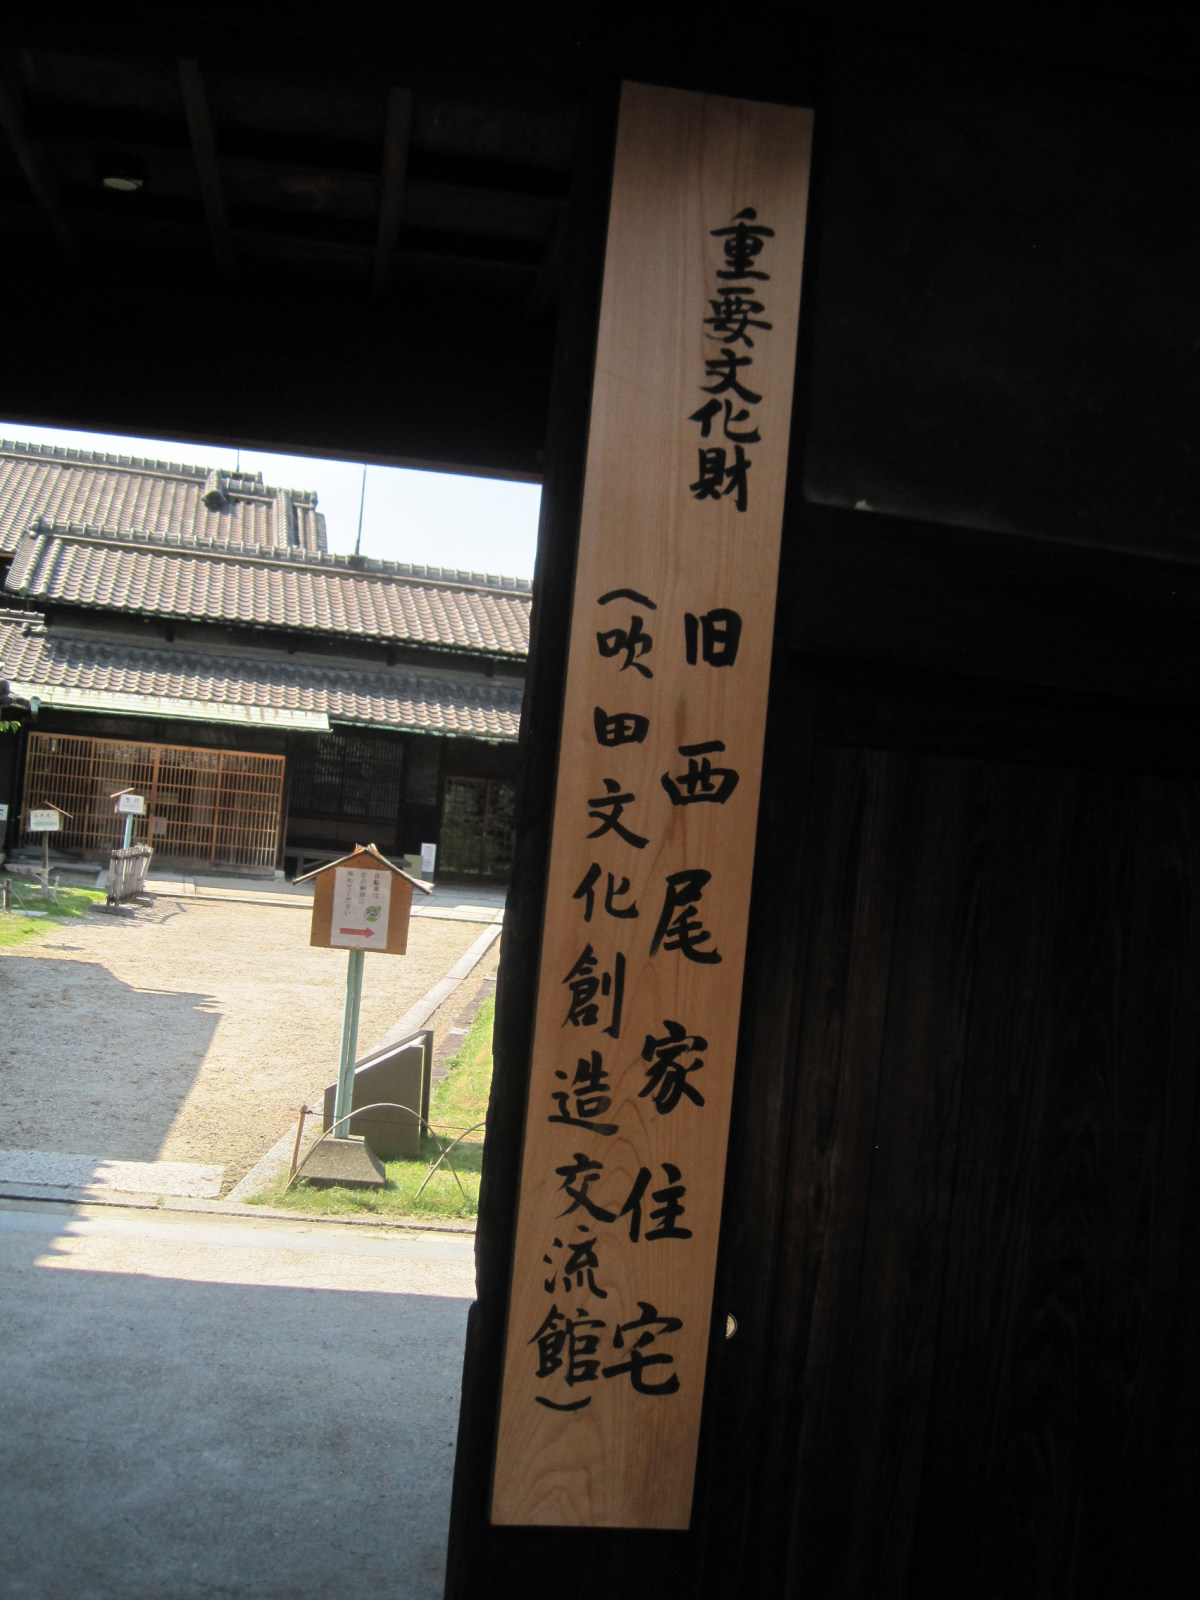 重要文化財 旧西尾家住宅
(吹田文化創造交流館)
自転車は